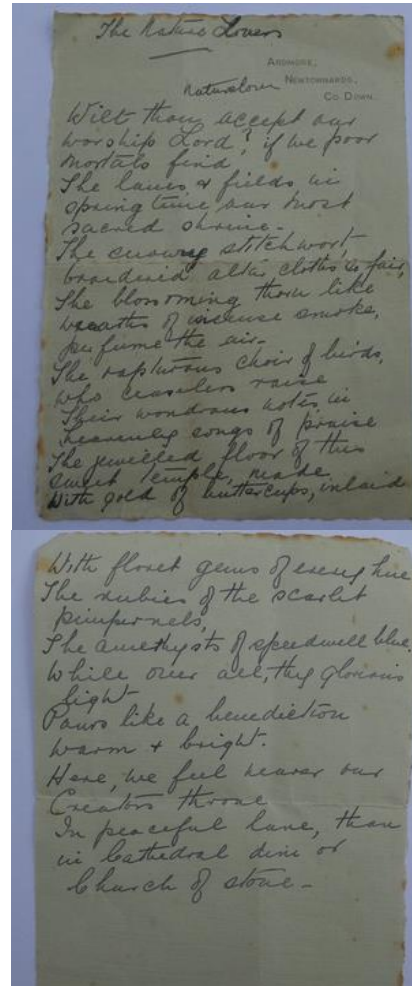 The Nature Lovers
ARDMORE,
NEWTOWNARDS,
CO. DOWN.
Naturelover
Wilt thou accept our
worship Lord? if we poor
mortals find
The lanes & fields in
springtime our most
sacred shrine -
The snowy stitchwort
broidered altar cloths so fair,
The blossoming thorn like
wreaths of incense smoke,
perfume the air -
The rapturous choir of birds,
who ceaseless raise
Their wondrous notes in
heavenly songs of praise
The jewelled floor of this
sweet temple, made
With gold of buttercups, inlaid
With floret gems of every hue
The rubies of the scarlet
pimpernels,
The amethysts of speedwell blue.
While over all, thy glorious
light
Pours like a benediction
warm & bright.
Here, we feel nearer our
Creators throne
In peaceful lane, than
in Cathedral dim or
Church of stone -